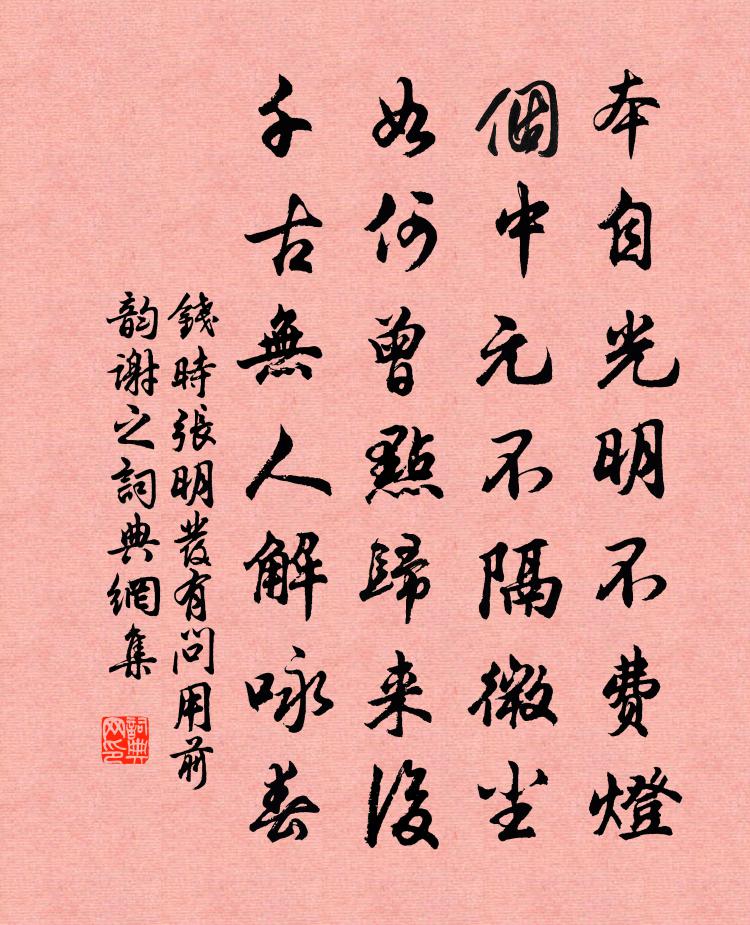 本自光明不费燈
個中元不隔微尘
如何曾點歸来後
千古無人解咏春
錢時張明發有問用前
韵謝之詞典網集
詞典网印